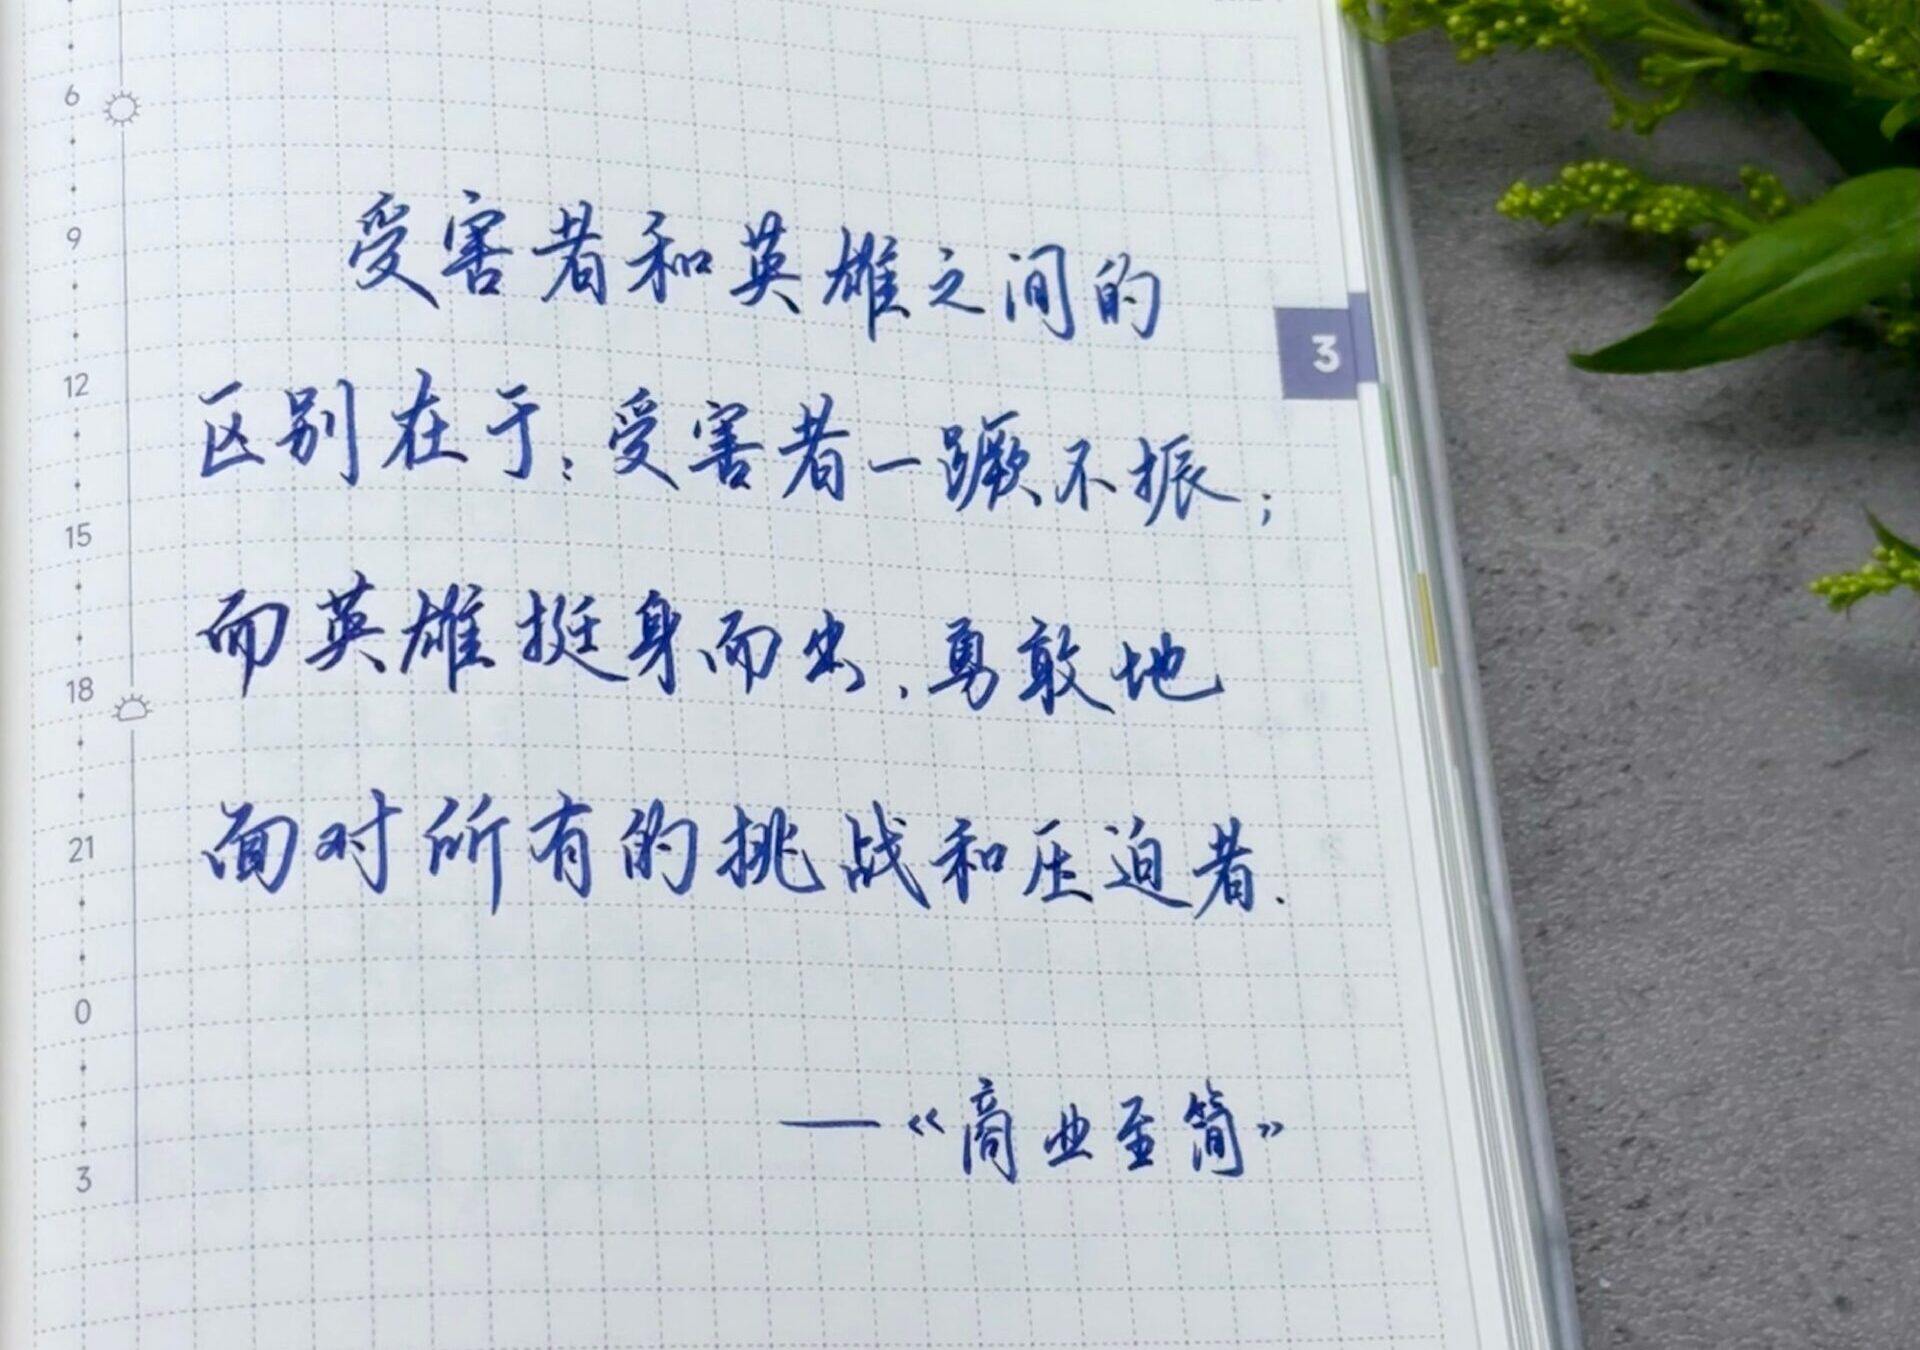 6
9
12
15
18
21
0
3
受害者和英雄之间的
区别在于:受害者一蹶不振;
而英雄挺身而出、勇敢地
面对所有的挑战和压迫者.
——《商业至简》
3